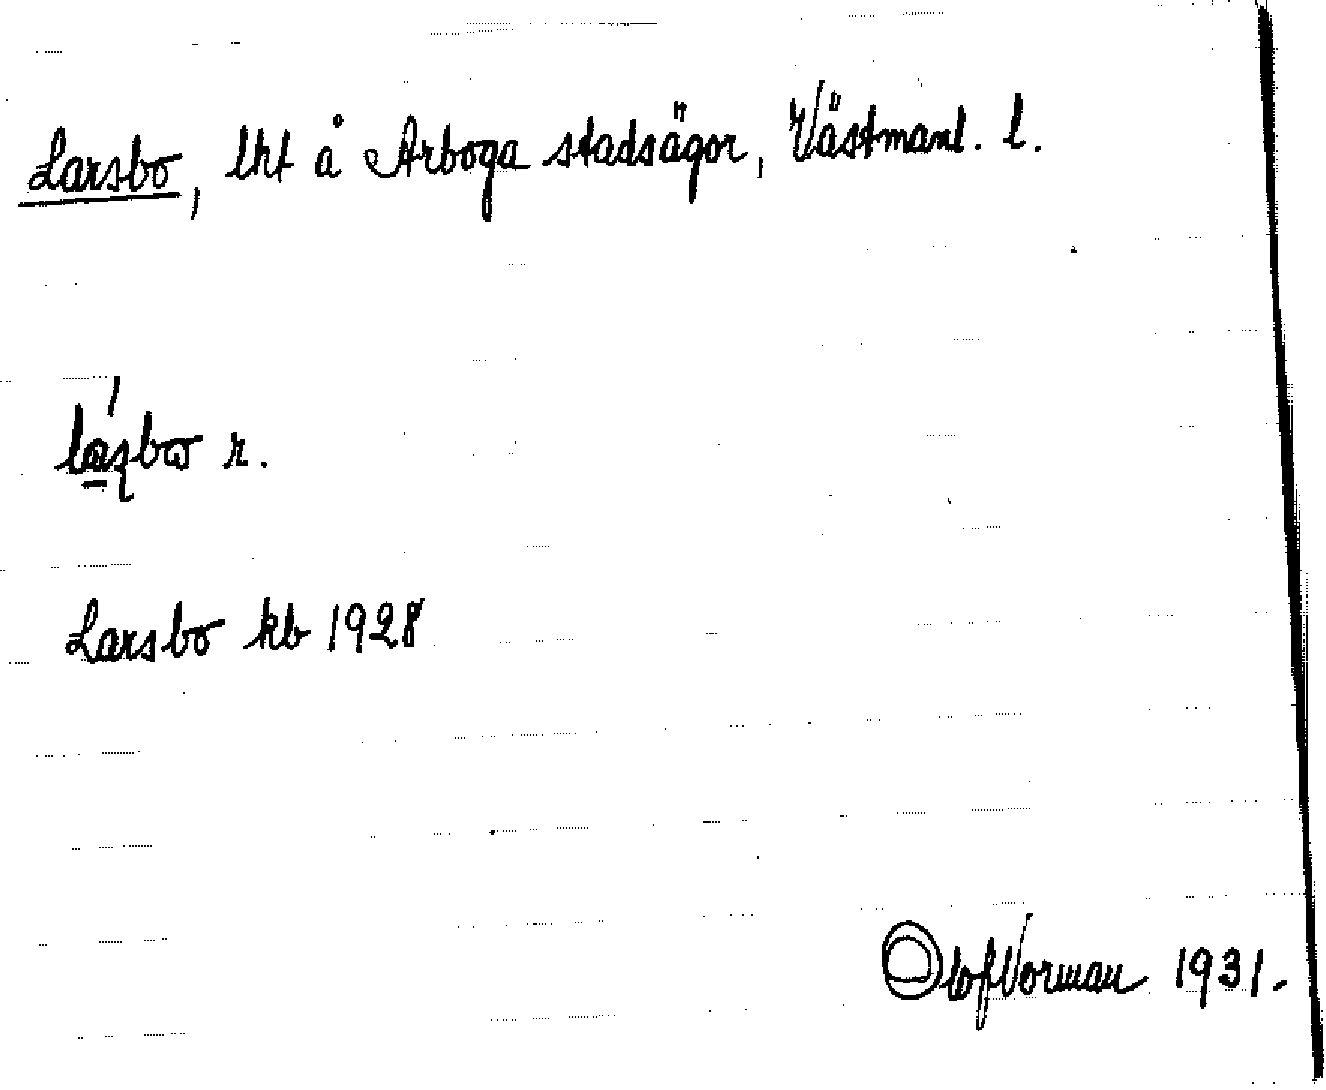 Larsbo, lht å Arboga stadsägor, Västmanl. l.
r.
Larsbo kb 1928
Olof Vorman 1931.